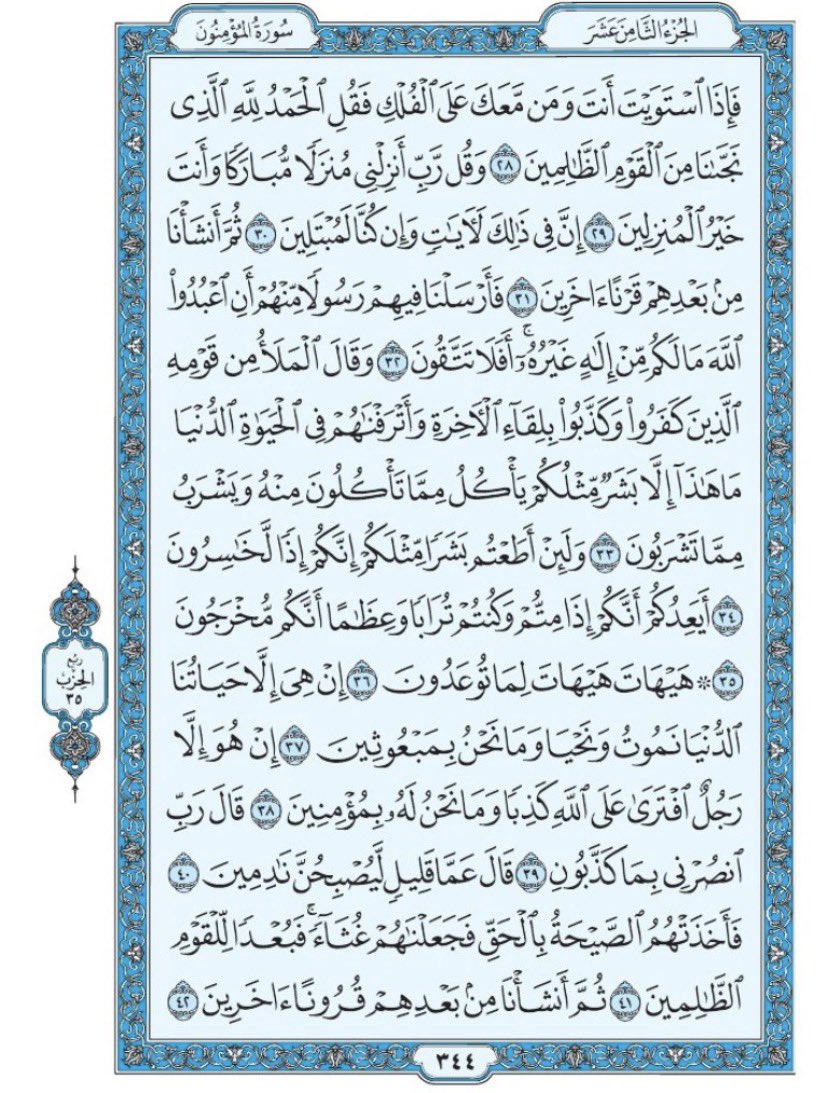 سُورَةُ المُؤْمِنُونَ
الجُزْءُ الثَّامِنَ عَشَرَ
فَإِذَا ٱسْتَوَيْتَ أَنتَ وَمَن مَّعَكَ عَلَى ٱلْفُلْكِ فَقُلِ ٱلْحَمْدُ لِلَّهِ ٱلَّذِى
نَجَّىٰنَا مِنَ ٱلْقَوْمِ ٱلظَّٰلِمِينَ ٢٨ وَقُل رَّبِّ أَنزِلْنِى مُنزَلًا مُّبَارَكًا وَأَنتَ
خَيْرُ ٱلْمُنزِلِينَ ٢٩ إِنَّ فِى ذَٰلِكَ لَءَايَٰتٍ وَإِن كُنَّا لَمُبْتَلِينَ ٣٠ ثُمَّ أَنشَأْنَا
مِنۢ بَعْدِهِمْ قَرْنًا ءَاخَرِينَ ٣١ فَأَرْسَلْنَا فِيهِمْ رَسُولًا مِّنْهُمْ أَنِ ٱعْبُدُوا۟
ٱللَّهَ مَا لَكُم مِّنْ إِلَٰهٍ غَيْرُهُۥٓ ۚ أَفَلَا تَتَّقُونَ ٣٢ وَقَالَ ٱلْمَلَأُ مِن قَوْمِهِ
ٱلَّذِينَ كَفَرُوا۟ وَكَذَّبُوا۟ بِلِقَآءِ ٱلْءَاخِرَةِ وَأَتْرَفْنَٰهُمْ فِى ٱلْحَيَوٰةِ ٱلدُّنْيَا
مَا هَٰذَآ إِلَّا بَشَرٌ مِّثْلُكُمْ يَأْكُلُ مِمَّا تَأْكُلُونَ مِنْهُ وَيَشْرَبُ
مِمَّا تَشْرَبُونَ ٣٣ وَلَئِنْ أَطَعْتُم بَشَرًا مِّثْلَكُمْ إِنَّكُمْ إِذًا لَّخَٰسِرُونَ
٣٤ أَيَعِدُكُمْ أَنَّكُمْ إِذَا مِتُّمْ وَكُنتُمْ تُرَابًا وَعِظَٰمًا أَنَّكُم مُّخْرَجُونَ
٣٥ ۞ هَيْهَاتَ هَيْهَاتَ لِمَا تُوعَدُونَ ٣٦ إِنْ هِىَ إِلَّا حَيَاتُنَا
ٱلدُّنْيَا نَمُوتُ وَنَحْيَا وَمَا نَحْنُ بِمَبْعُوثِينَ ٣٧ إِنْ هُوَ إِلَّا
رَجُلٌ ٱفْتَرَىٰ عَلَى ٱللَّهِ كَذِبًا وَمَا نَحْنُ لَهُۥ بِمُؤْمِنِينَ ٣٨ قَالَ رَبِّ
ٱنصُرْنِى بِمَا كَذَّبُونِ ٣٩ قَالَ عَمَّا قَلِيلٍ لَّيُصْبِحُنَّ نَٰدِمِينَ ٤٠
فَأَخَذَتْهُمُ ٱلصَّيْحَةُ بِٱلْحَقِّ فَجَعَلْنَٰهُمْ غُثَآءً ۚ فَبُعْدًا لِّلْقَوْمِ
ٱلظَّٰلِمِينَ ٤١ ثُمَّ أَنشَأْنَا مِنۢ بَعْدِهِمْ قُرُونًا ءَاخَرِينَ ٤٢
ربع
الحِزْب
٣٥
٣٤٤